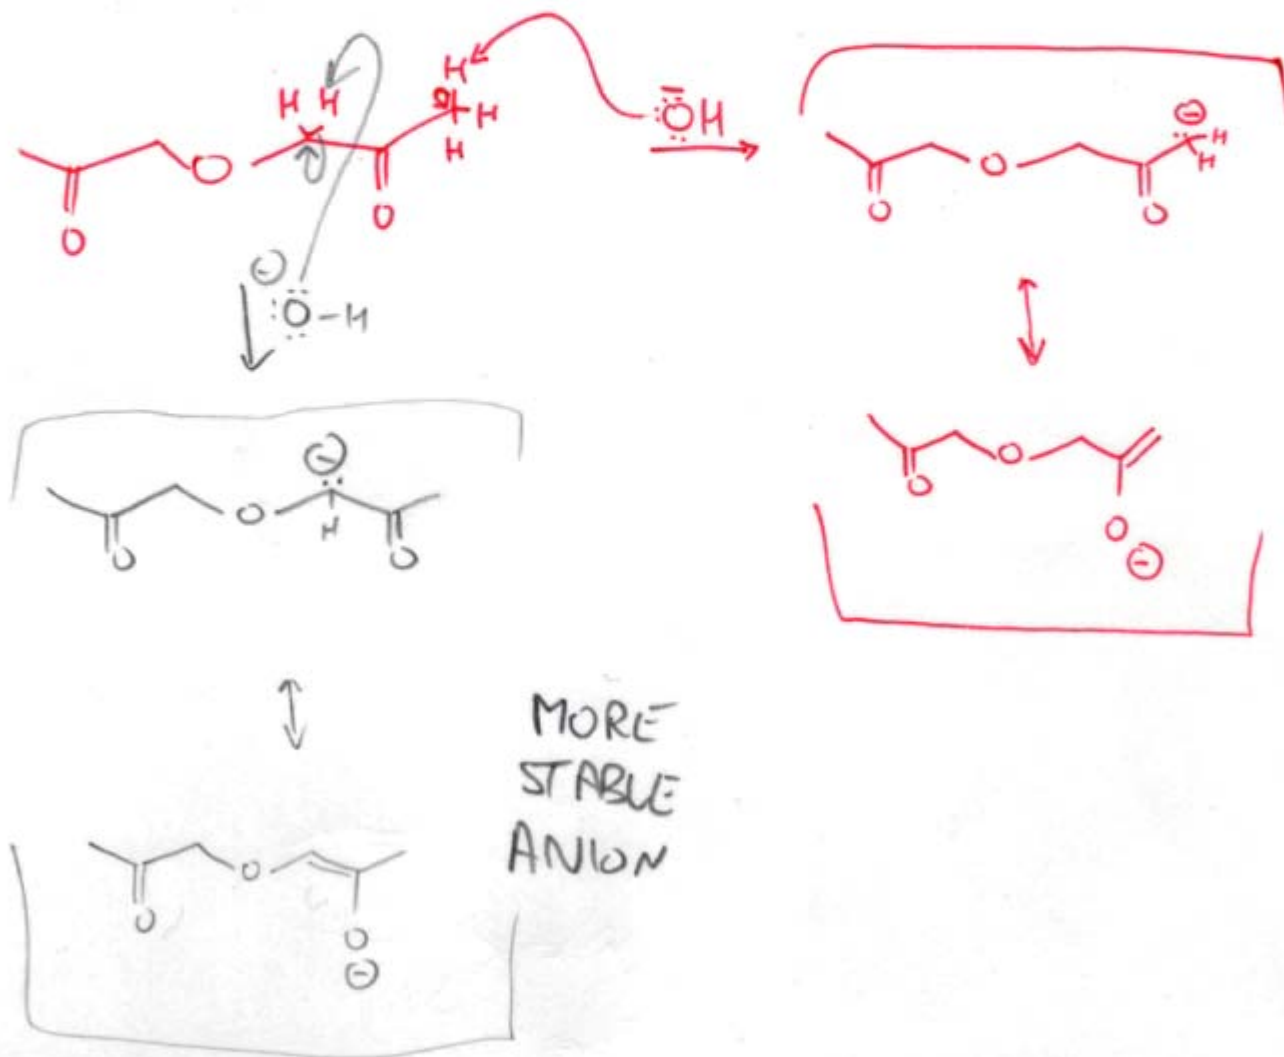 H
H H
H
H
O
O
O
:ÖH
⊖
:Ö-H
⊖
H
H
O
O
O
O
O
O
⊖
⊖
O
H
O
O
MORE
STABLE
ANION
O
O
O
⊖